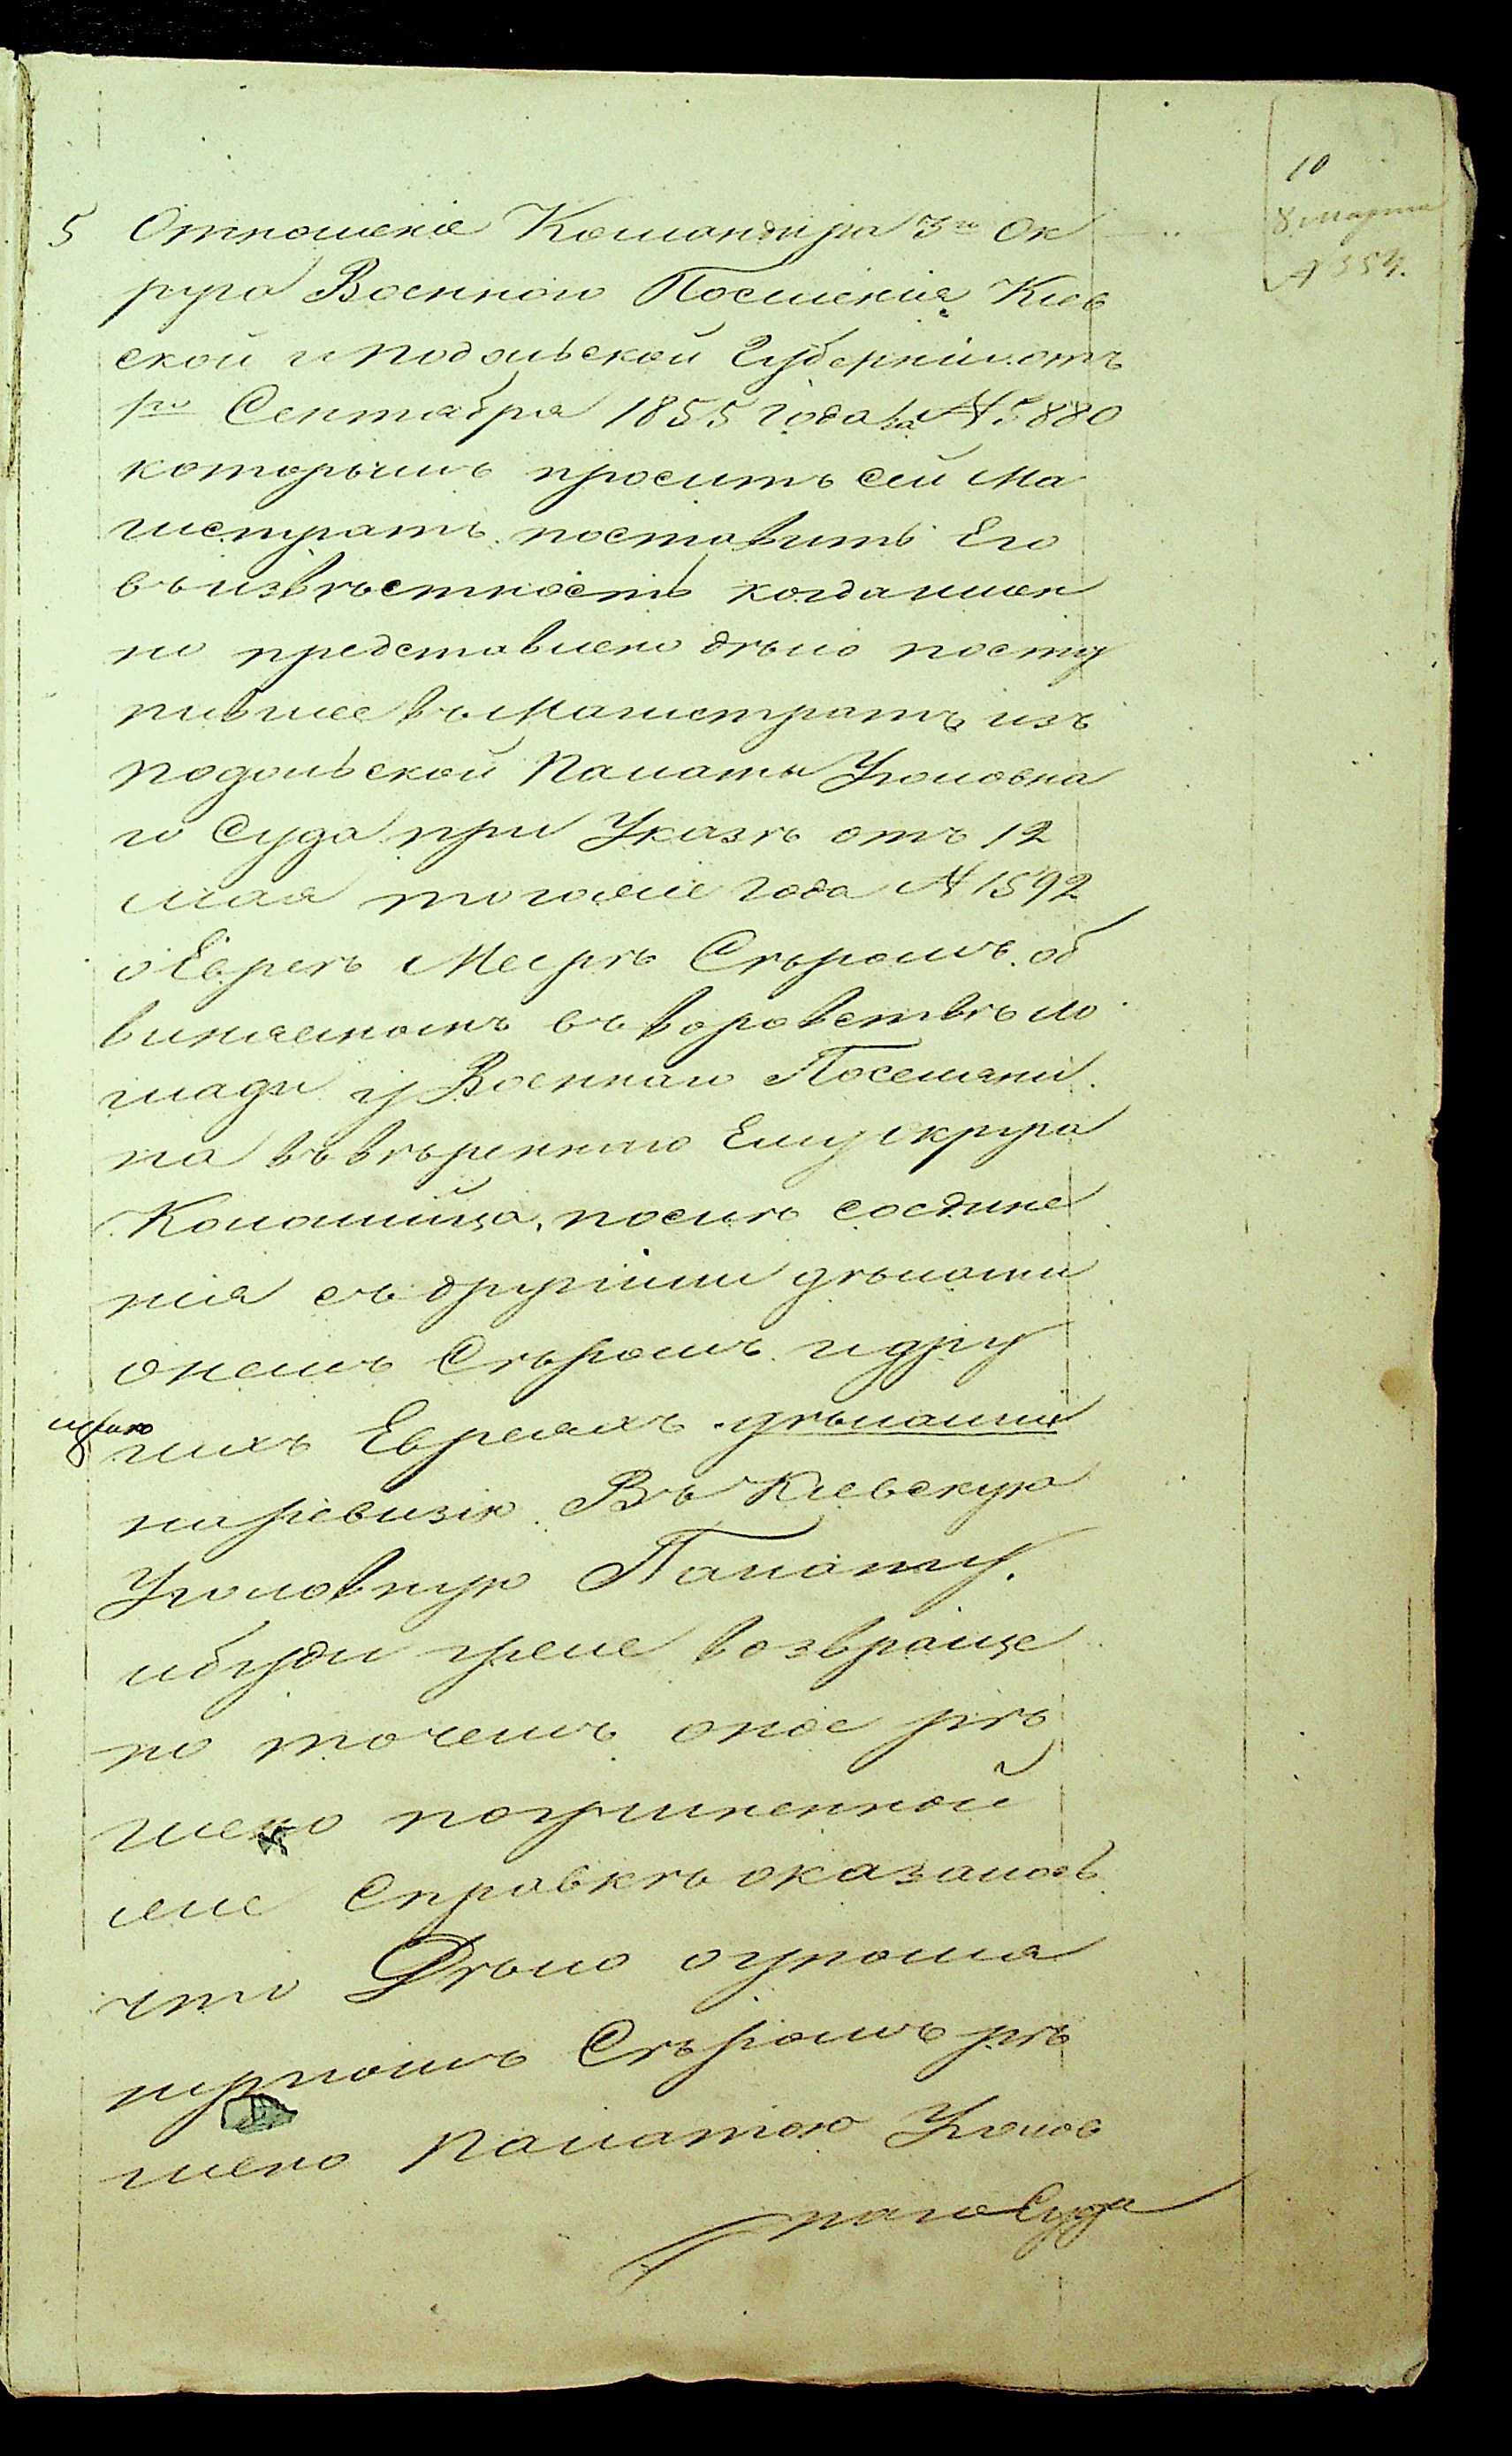 10
8 марта
№ 354.
5 Отношеніе Командира 3го Ок
руга Военнаго Поселенія Кіев
ской и Подольской Губерніи отъ
1го Сентября 1855 года за № 5880
которымъ проситъ сей Ма
гистратъ поставить Его
въ извѣстность когда имен
но представлено дѣло посту
пившее въ Магистратъ изъ
Подольской Палаты Уголовна
го Суда при Указѣ отъ 12
мая тогоже года № 1592
о Евреѣ Меирѣ Сѣромъ об
виняемомъ въ воровствѣ ло
шади у Военнаго Поселяни
на ввѣреннаго Ему округа
Коломійца, послѣ соедине
нія съ другими дѣлами
онемъ Сѣромъ и дру
гихъ Евреяхъ дѣлами
на ревизію Въ Кіевскую
Уголовную Палату.
и буди уже возвраще
но то чемъ оное рѣ
шено поучиненной
же Справкѣ оказалось
что Дѣло
Сѣромъ рѣ
шено Палатою Уголов
наго Суда